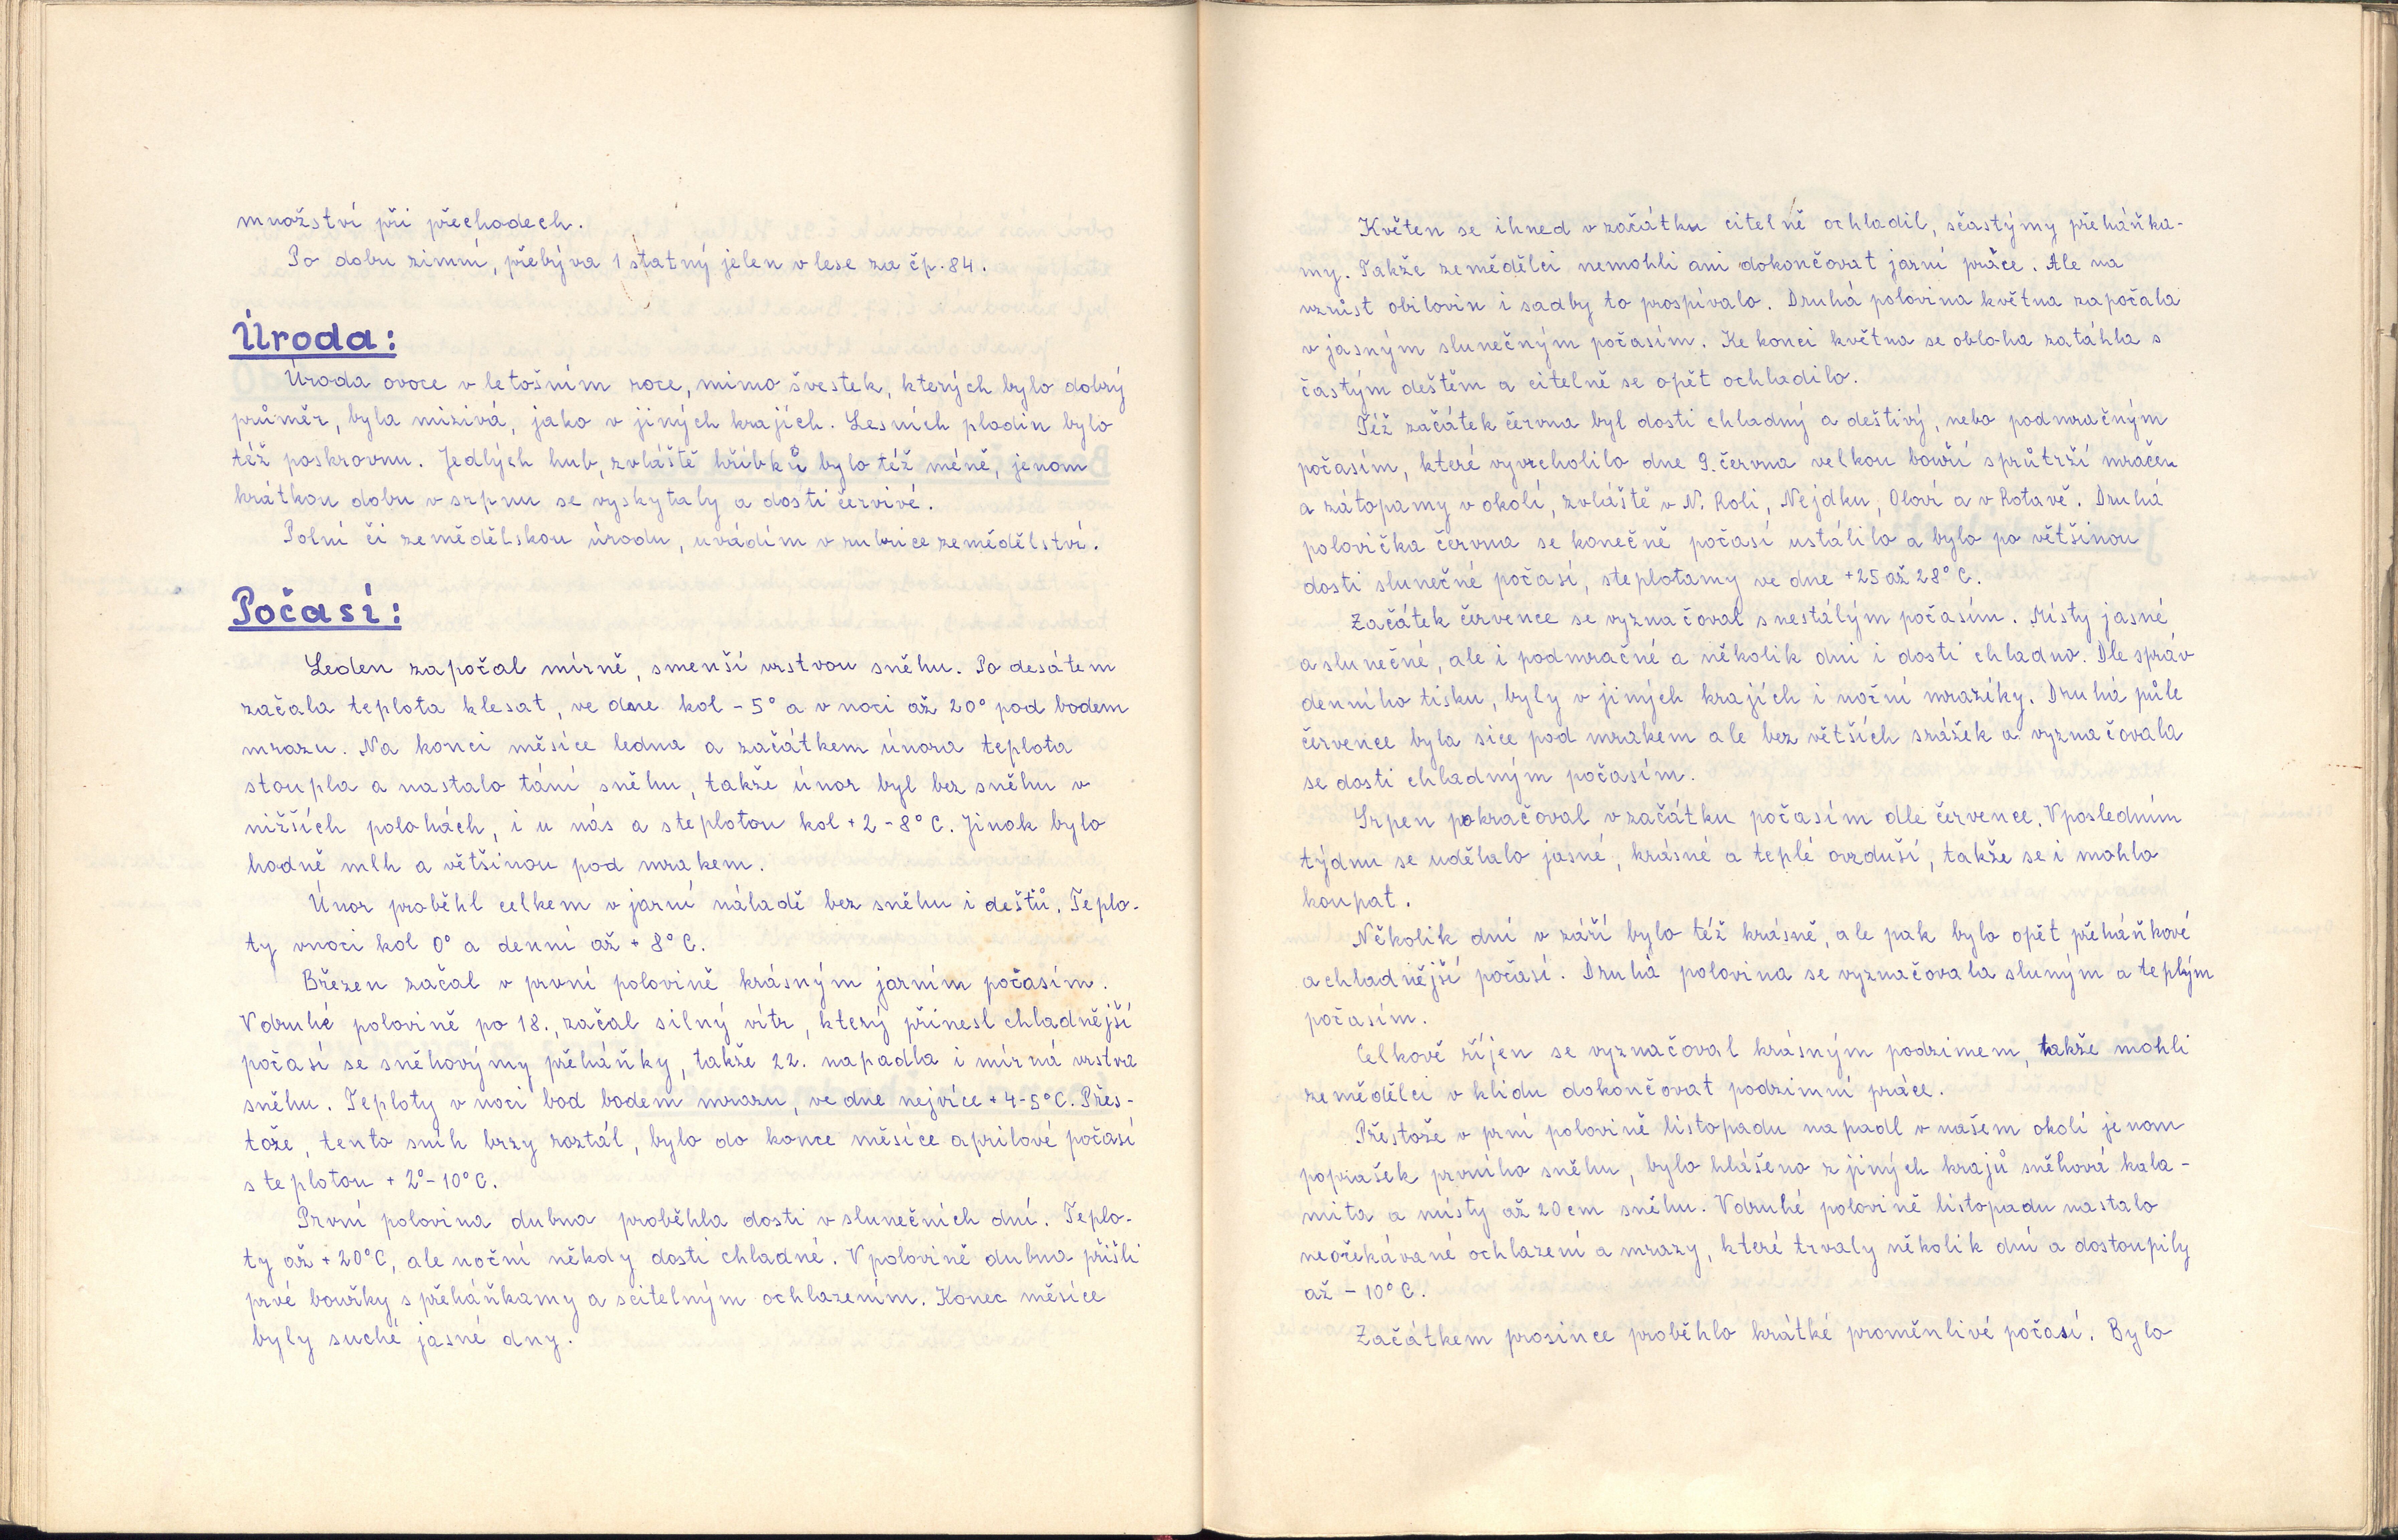 množství při přechodech.
Po dobu zimní, přebýva 1 statný jelen v lese za čp. 84.
Úroda:
Úroda ovoce v letošním roce, mimo švestek, kterých bylo dobrý
průměr, byla mizivá, jako v jiných krajích. Lesních plodin bylo
též poskrovnu. Jedlých hub, zvláště hříbků bylo též méně, jenom
krátkou dobu v srpnu se vyskytaly a dosti červivé.
Polní či zemědělskou úrodu, uvádím v rubrice zemědělství.
Počasí:
Leden započal mírně, smenší vrstvou sněhu. Po desátem
začala teplota klesat, ve dne kol - 5° a v noci až 20° pod bodem
mrazu. Na konci měsíce ledna a začátkem února teplota
stoupla a nastalo tání sněhu, takže únor byl bez sněhu v
nižších polohách, i u nás a steplotou kol + 2 - 8° C. Jinak bylo
hodně mlh a většinou pod mrakem.
Únor proběhl celkem v jarní náladě bez sněhu i deštů. Teplo-
ty vnoci kol 0° a denní až + 8° C.
Březen začal v první polovině krásným jarním počasím.
Vdruhé polovině po 18., začal silný vítr, který přinesl chladnější
počasí se sněhovýmy přeháňky, takže 22. napadla i mírná vrstva
sněhu. Teploty v noci bod bodem mrazu, ve dne nejvíce + 4-5° C. Přes-
tože, tento sníh brzy roztál, bylo do konce měsíce aprilové počasí
s teplotou + 2° - 10° C.
První polovina dubna proběhla dosti v slunečních dní. Teplo-
ty až + 20° C, ale noční někdy dosti chladné. V polovině dubna přišli
prvé bouřky s přeháňkamy a scitelným ochlazením. Konec měsíce
byly suché jasné dny.
Květen se ihned v začátku citelně ochladil, sčastýmy přeháňka-
my. Takže zemědělci nemohli ani dokončovat jarní práce. Ale na
vzrůst obilovin i sadby to prospívalo. Druhá polovina května započala
v jasným slunečným počasím. Ke konci května se obloha zatáhla s
častým deštěm a citelně se opět ochladilo.
Též začátek června byl dosti chladný a deštivý, nebo podmračným
počasím, které vyvrcholilo dne 9. června velkou bouří sprůtrží mračen
a zátopamy v okolí, zvláště v N. Roli, Nejdku, Oloví a v Rotavě. Druhá
polovička června se konečně počasí ustálilo a bylo po většinou
dosti slunečné počasí, steplotamy ve dne +25 až 28° C.
Začátek července se vyznačoval s nestálým počasím. Místy jasné
a slunečné, ale i podmračné a několik dni i dosti chladno. Dle správ
denního tisku, byly v jiných krajích i noční mrazíky. Druhá půle
července byla sice pod mrakem ale bez větších srážek a vyznačovala
se dosti chladným počasím.
Srpen pokračoval v začátku počasím dle července. Vposledním
týdnu se udělalo jasné, krásné a teplé ovzduší, takže se i mohlo
koupat.
Několik dní v září bylo též krásně, ale pak bylo opět přeháňkové
a chladnější počasí. Druhá polovina se vyznačovala sluným a teplým
počasím.
Celkově říjen se vyznačoval krásným podzimem, takže mohli
zemědělci v klidu dokončovat podzimní práce.
Přestože v prní polovině listopadu napadl v našem okolí jenom
poprašek prvního sněhu, bylo hlášeno z jiných krajů sněhová kala-
mita a místy až 20 cm sněhu. Vdruhé polovině listopadu nastalo
neočekávané ochlazení a mrazy, které trvaly několik dní a dostoupily
až - 10° C.
Začátkem prosince proběhlo krátké proměnlivé počasí. Bylo